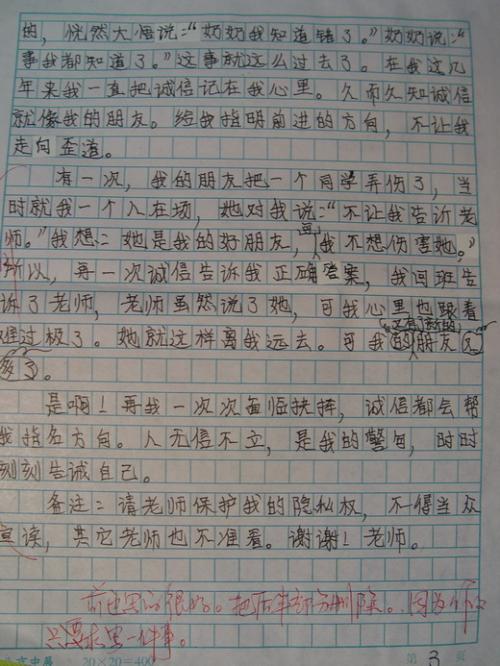 的，恍然大悟说：“奶奶我知道错了。”奶奶说：“
事我都知道了。”这事就这么过去了。在我这几
年来我一直把诚信记在我心里。久而久知诚信
就像我的朋友。给我指明前进的方向，不让我
走向歪道。
有一次，我的朋友把一个同学弄伤了，当
时就我一个人在场，她对我说：“不让我告诉老
师。”我想：她是我的好朋友，我不想伤害她。”
所以，再一次诚信告诉我正确答案，我回班告
诉了老师，老师虽然说了她，可我心里也跟着
难过极了。她就这样离我远去。可我的朋友
多了。
是啊！再我一次次面临抉择，诚信都会帮
我指名方向。人无信不立，是我的警句，时时
刻刻告诫自己。
备注：请老师保护我的隐私权，不得当众
宣读，其它老师也不准看。谢谢！老师。
前也写的很好。把后半部分删除。因为作文
只要求写一件事。
20×20=400
第 3 页